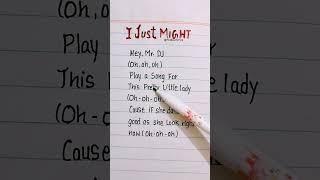 I Just MIGHT
Hey, Mr. DJ
(Oh, oh, oh)
Play a Song For
This Pretty Little lady
(Oh-oh-oh
Cause IF she
good as she Look right
now (Oh-oh-oh)
Play
This
(Oh
Cause